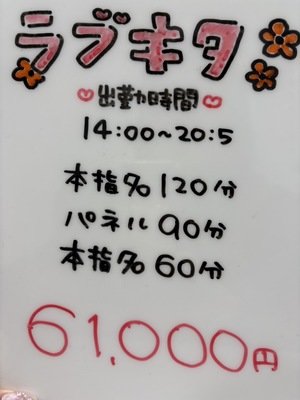 ラブキタ
出勤時間
14:00~20:5
本指名 120分
パネル 90分
本指名 60分
61,000円